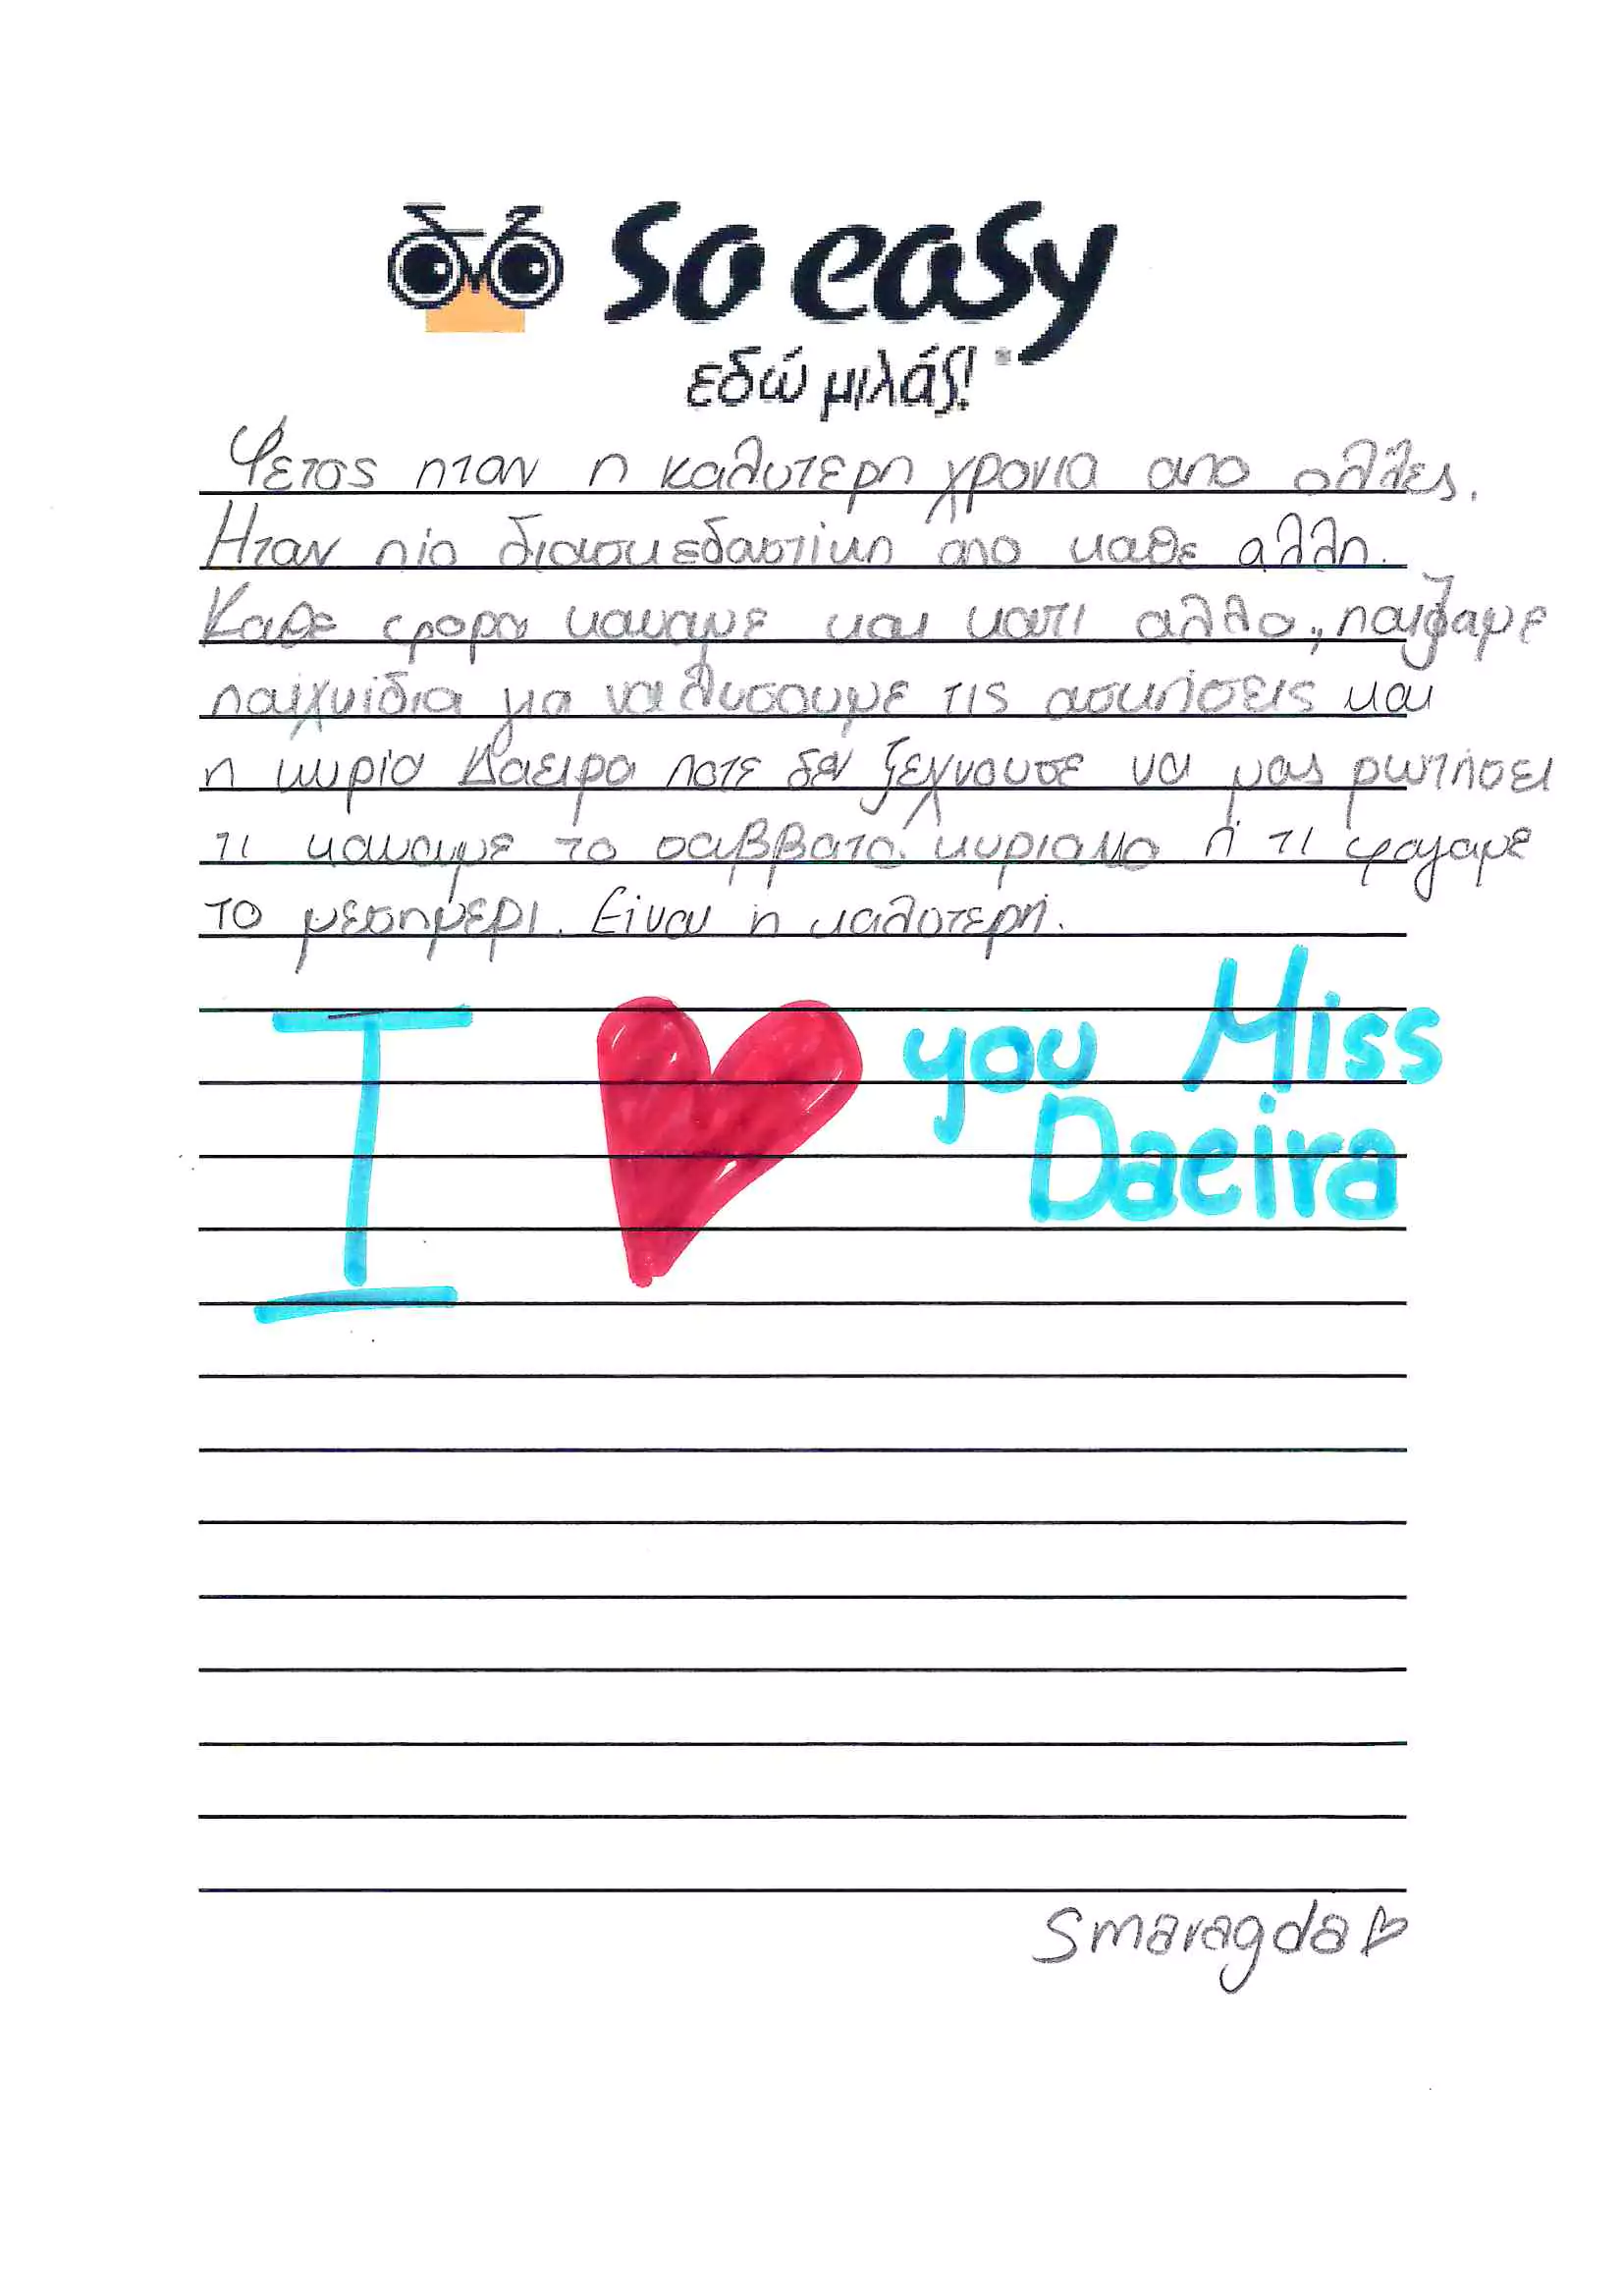 so easy
εδώ μιλάς!
Φετος ηταν η καλυτερη χρονια απο ολλες.
Ηταν πίο διασκεδαστίκη απο καθε αλλη.
Καθε φορα καναμε και κατι αλλο, παιζαμε
παίχνίδια για να λυσουμε τις ασκήσεις και
η κυρία Δαειρα ποτε δεν ξεχνουσε να μας ρωτήσει
τι καναμε το σαββατο. κυριακο ή τι φαγαμε
το μεσημερι. Είναι ή καλυτερή.
I you Miss
Daeira
Smaragda